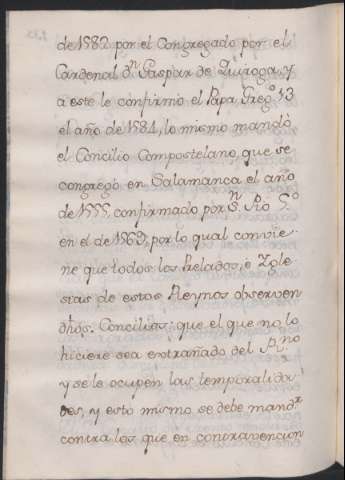 de 1582 por el congregado por el
Cardenal dn Gaspar de Quiroga, y
a este le confirmò el Papa Grego 13
el año de 1584, lo mismo mandò
el Concilio Compostelano, que se
congregò en Salamanca el año
de 1555, confirmado por Sn Pio 5o
en el de 1569, por lo qual convie-
ne que todos los Prelados, è Ygle-
sias de estos Reynos observen
dhos. Concilios: que el que no lo
hiciere sea extrañado del Rno
y se le ocupen las temporalida-
des, y esto mismo se debe mandr
contra los que en contravencion